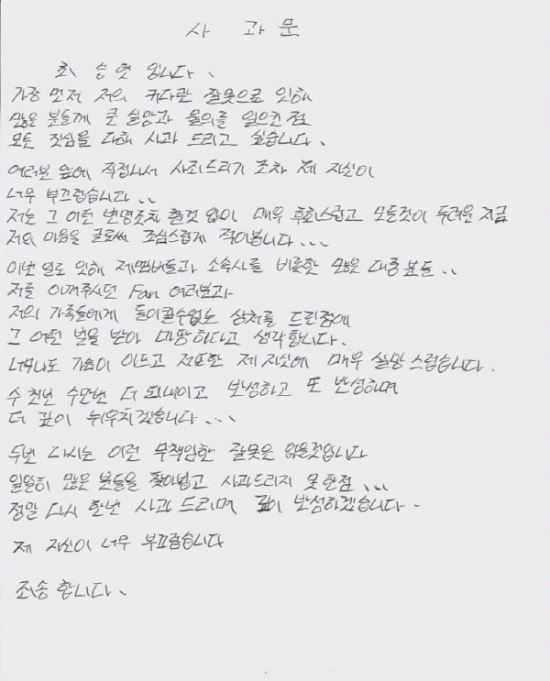 사 과 문
최 승 현 입니다.
가장 먼저 저의 커다란 잘못으로 인해
많은 분들께 큰 실망과 물의를 일으킨 점
모든 진심을 다해 사과 드리고 싶습니다.
여러분 앞에 직접나서 사죄드리기 조차 제 자신이
너무 부끄럽습니다..
저는 그 어떤 변명조차 할것 없이 매우 후회스럽고 모든것이 두려운 지금
저의 마음을 글로써 조심스럽게 적어봅니다...
이번 일로 인해 제멤버들과 소속사를 비롯한 많은 대중분들..
저를 아껴주시던 Fan 여러분과
저의 가족들에게 돌이킬수없는 상처를 드린점에
그 어떤 벌을 받아 마땅하다고 생각합니다.
너무나도 가슴이 아프고 저또한 제 자신에 매우 실망 스럽습니다.
수 천번 수만번 더 되내이고 반성하고 또 반성하며
더 깊이 뉘우치겠습니다...
두번 다시는 이런 무책임한 잘못은 없을것입니다
일일히 많은 분들을 찾아뵙고 사과드리지 못한점...
정말 다시 한번 사과 드리며 깊이 반성하겠습니다.
제 자신이 너무 부끄럽습니다
죄송 합니다.